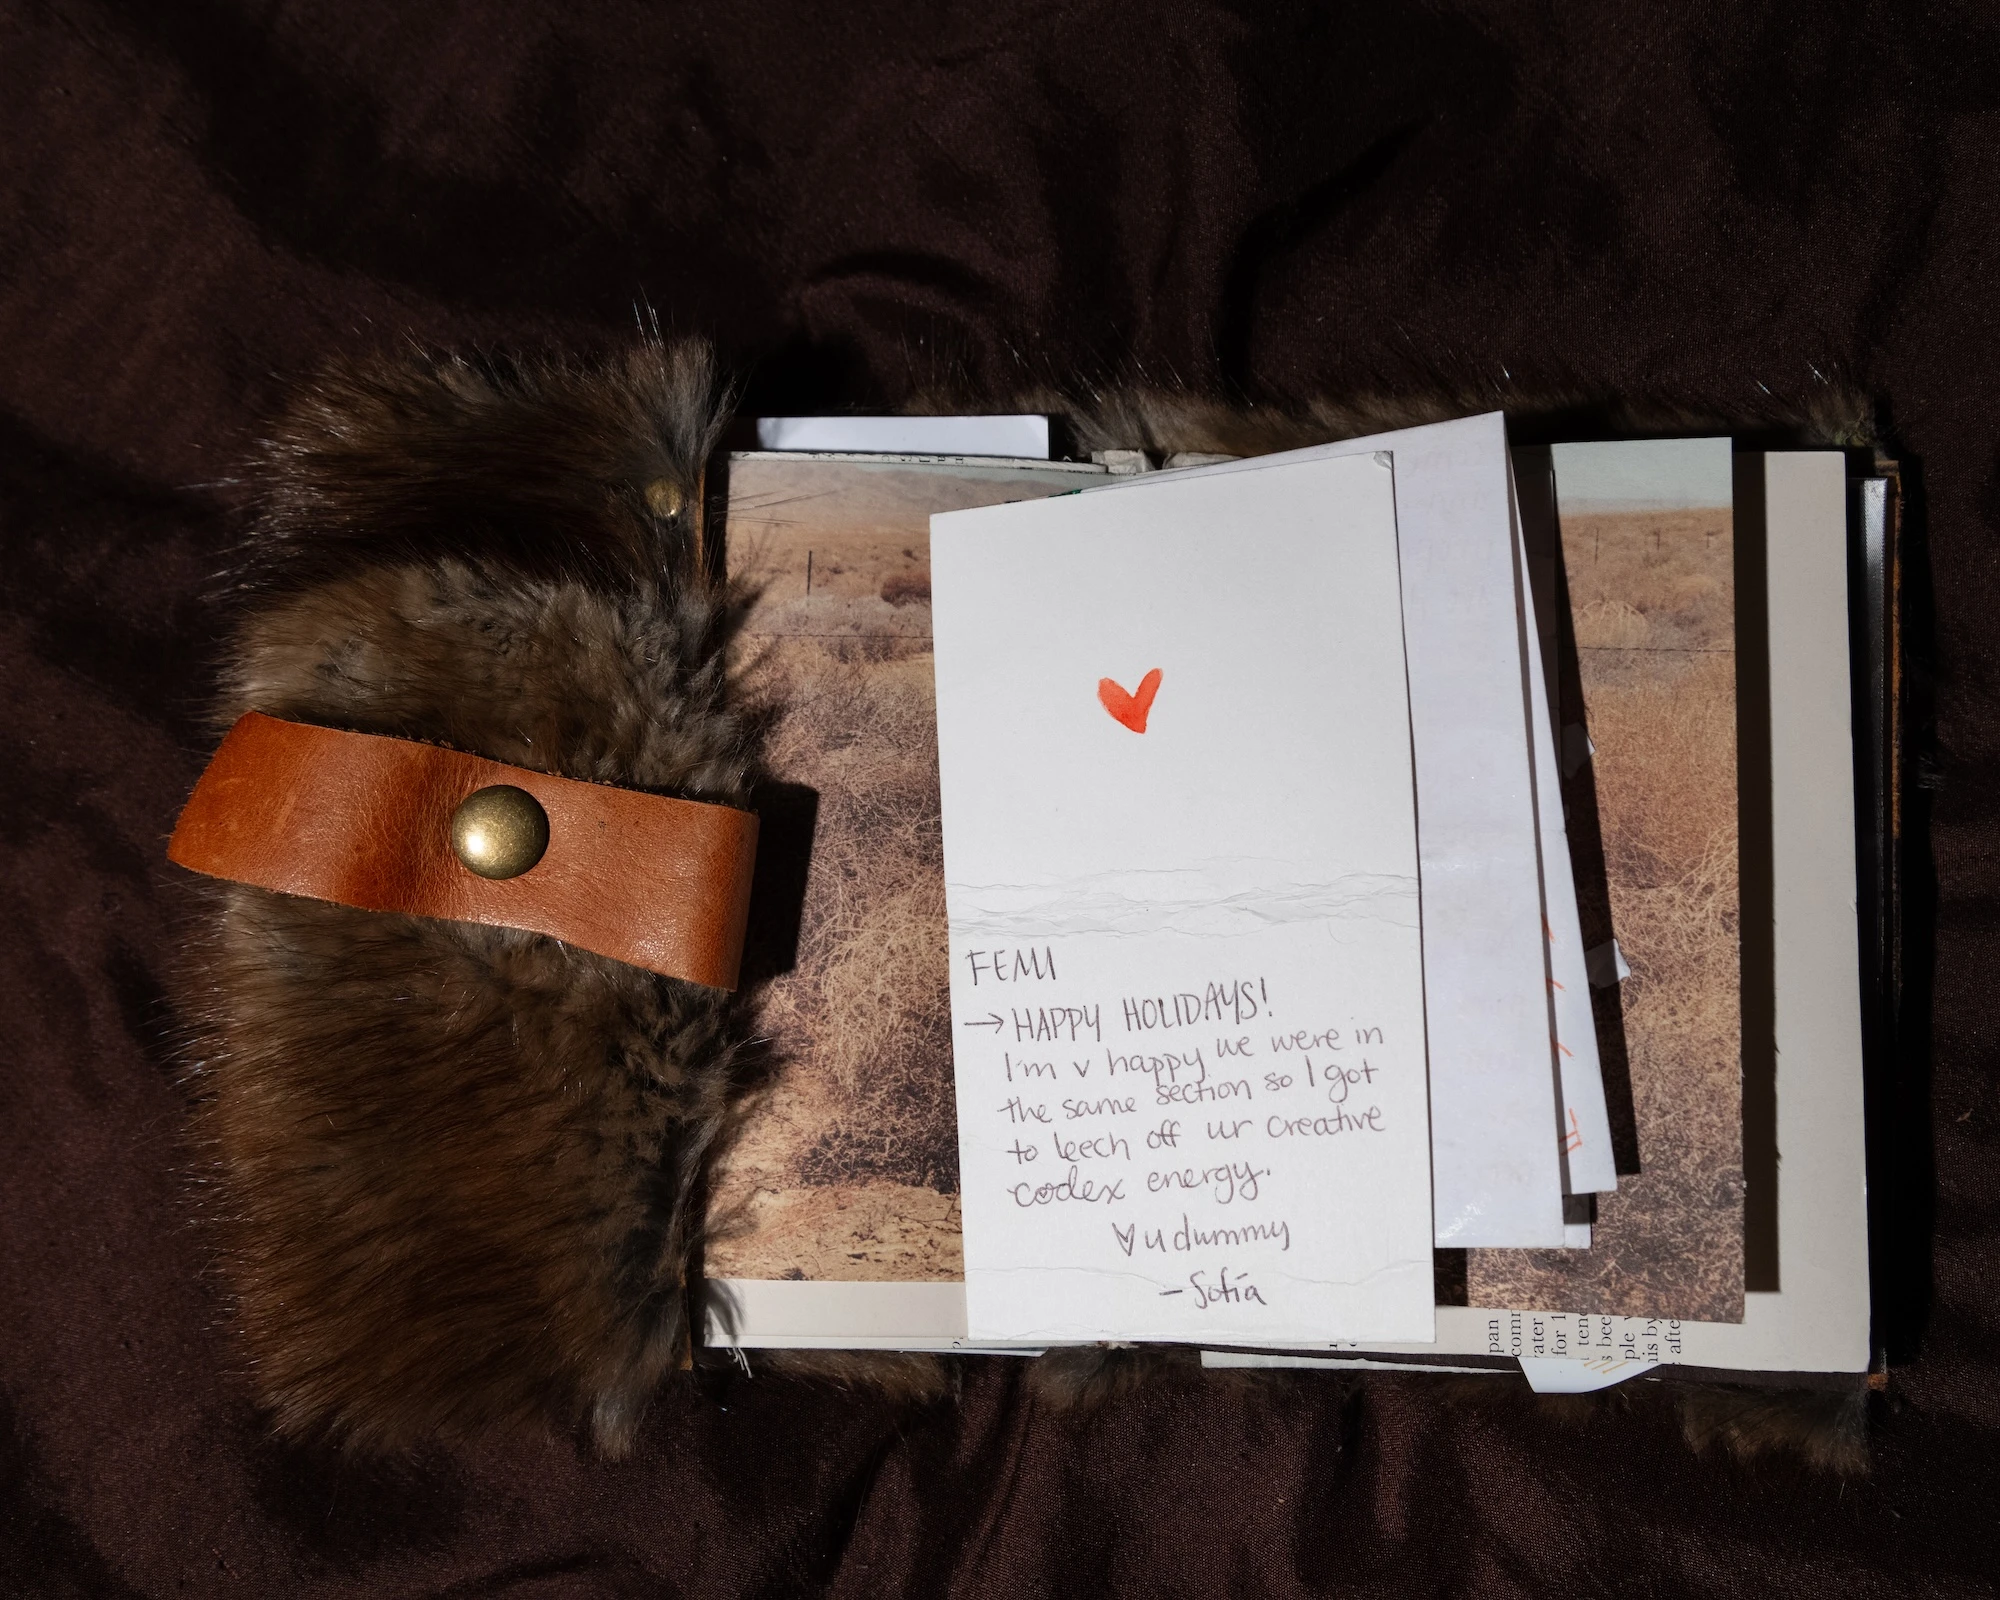 FEMI
→ HAPPY HOLIDAYS!
I'm v happy we were in
the same section so I got
to leech off ur creative
codex energy.
♥ u dummy
- Sofía
pan
comm
ater
for 1
tend
s bee
ple v
his by
afte